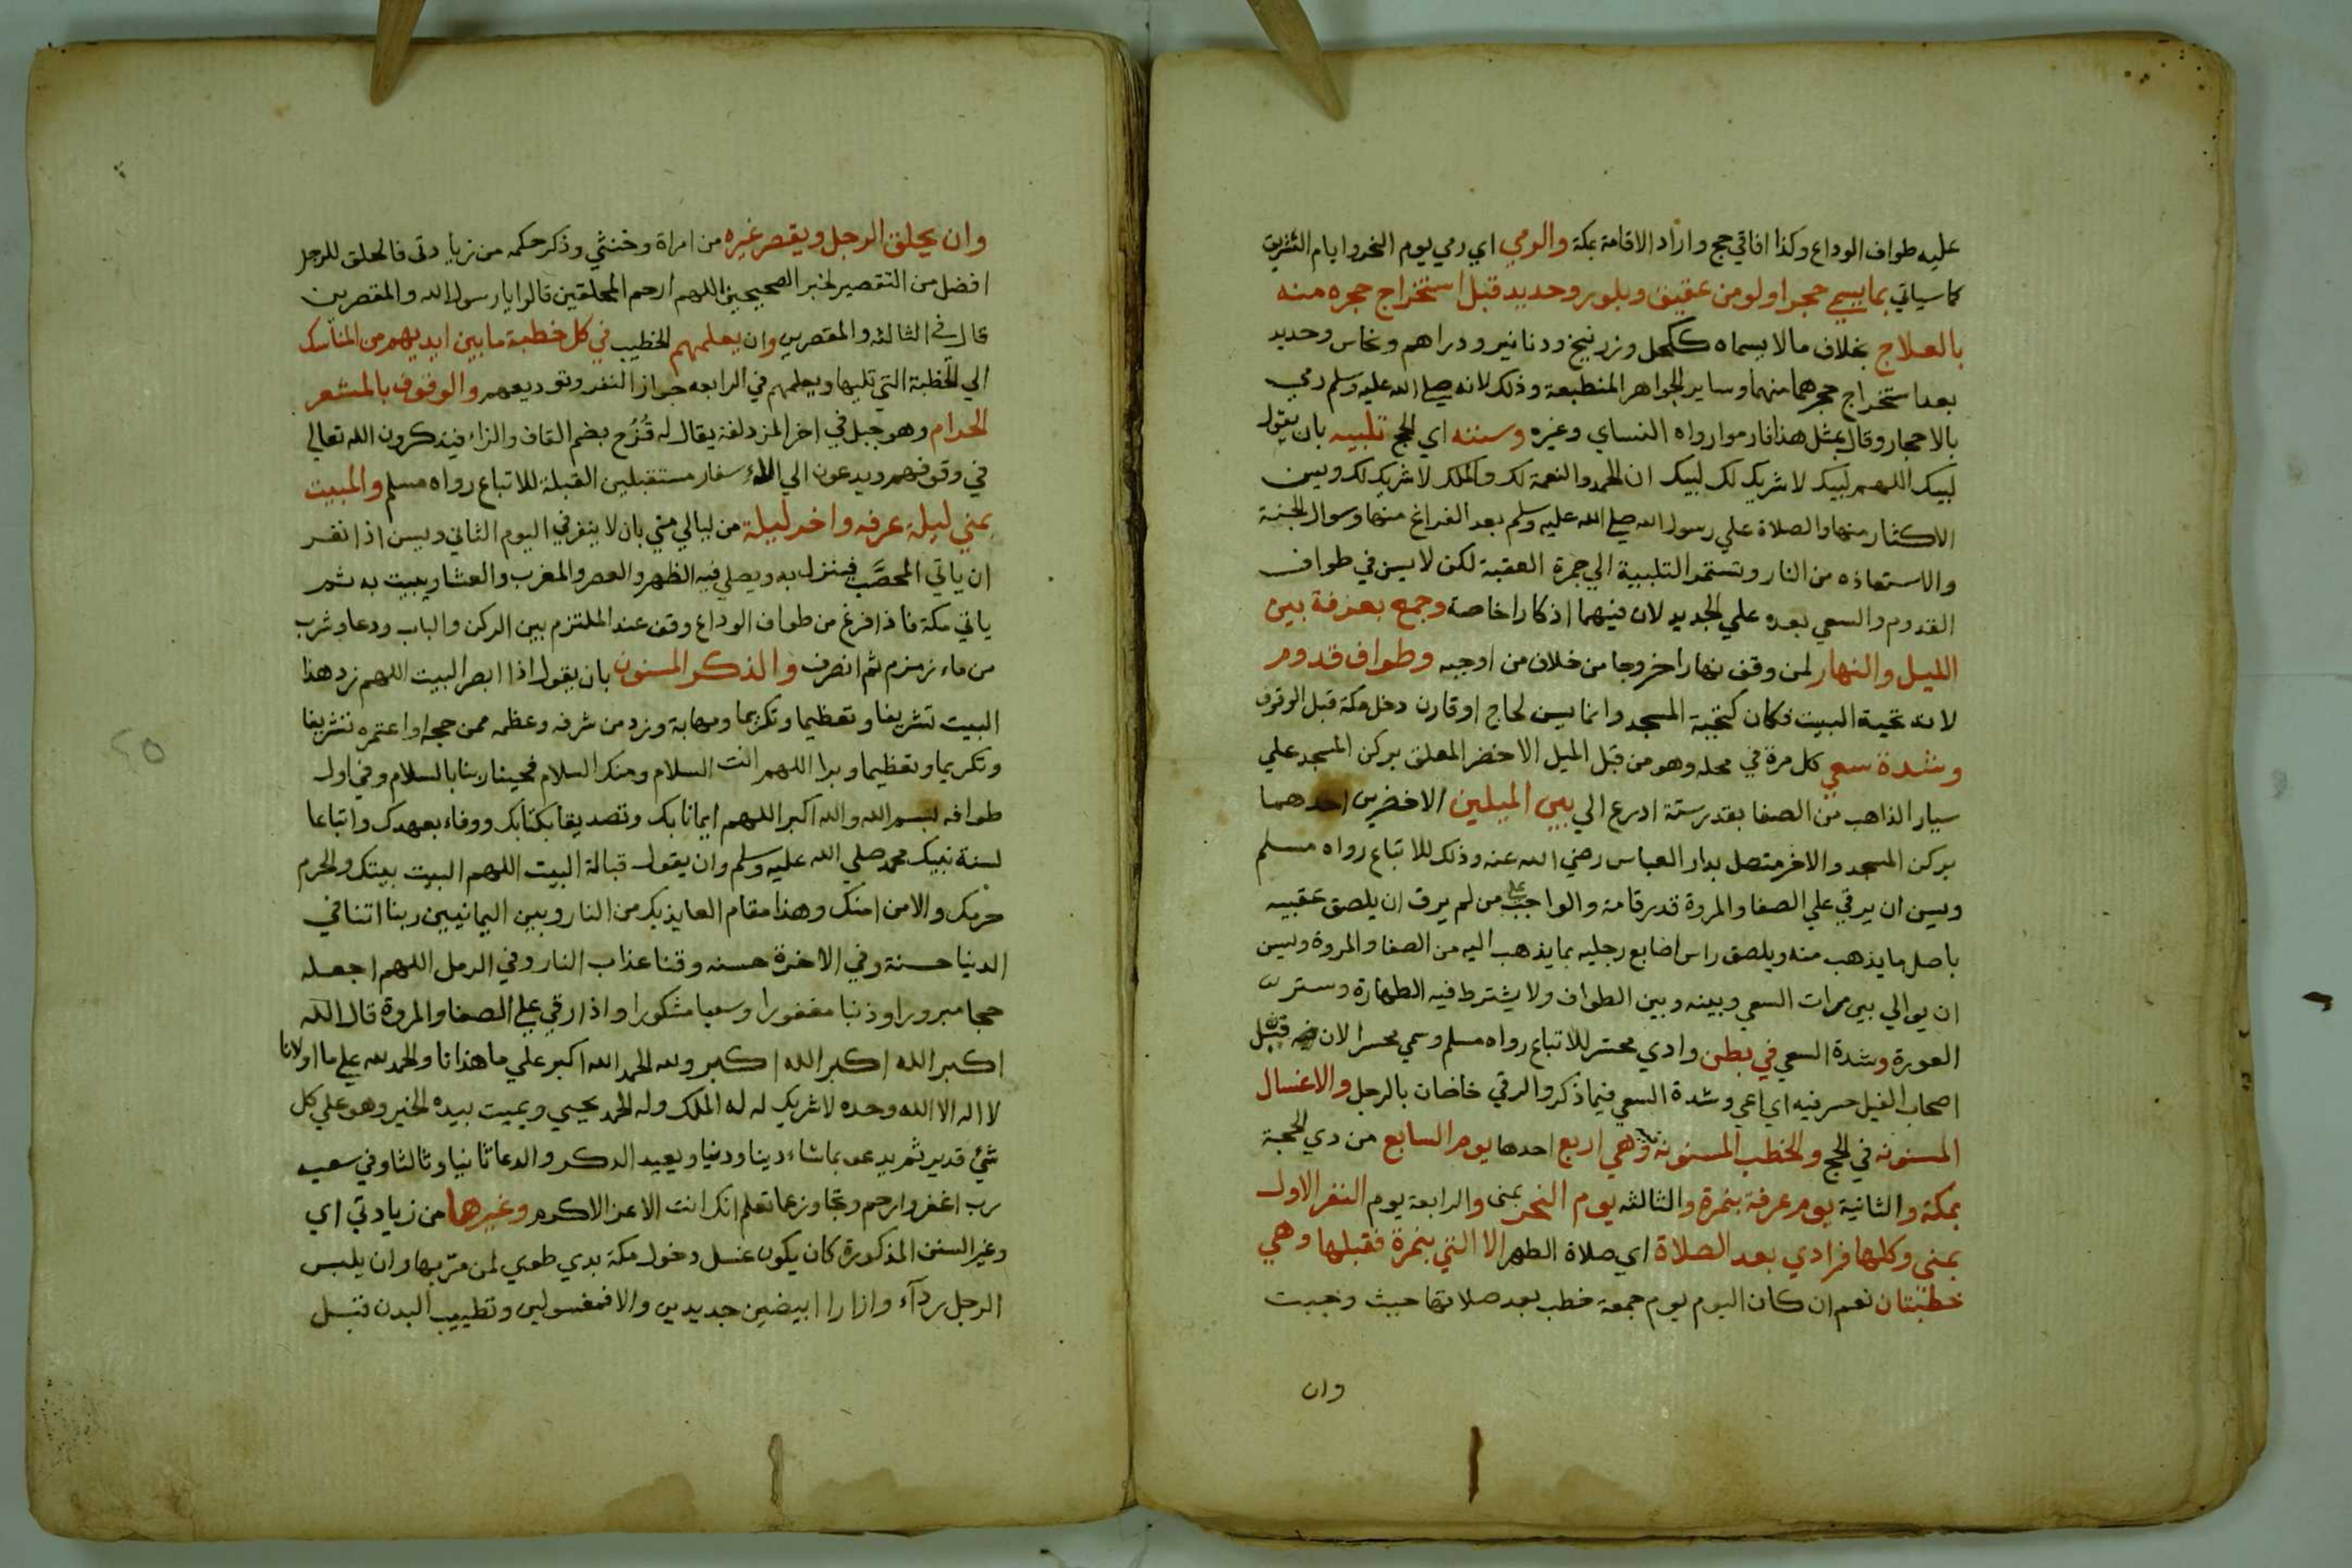 عليه طواف الوداع وكذا افاقي حج واراد الاقامة بمكة والرمي اي رمي يوم النحر وايام التشريق
كما سياتي بما يسمي حجرا ولو من عقيق وبلور وحديد قبل استخراج حجره منه
بالعلاج بخلاف مالا يسماه ككحل وزرنيخ ودنانير ودراهم ونحاس وحديد
بعد استخراج حجرهما منهما وساير الجواهر المنطبعة وذلك لانه صلي الله عليه وسلم رمي
بالاحجار وقال بمثل هذا فارموا رواه النساي وغيره وسننه اي الحج تلبيه بان يقول
لبيك اللهم لبيك لا شريك لك لبيك ان الحمد والنعمة لك والملك لا شريك لك ويسن
الاكثار منها والصلاة علي رسول الله صلي الله عليه وسلم بعد الفراغ منها وسوال الجنة
والاستعاذه من النار وتستمر التلبية الي جمرة العقبة لكن لا يسن في طواف
القدوم والسعي بعده علي الجديد لان فيهما اذكارا خاصة وجمع بعرفة بين
الليل والنهار لمن وقف نهارا خروجا من خلاف من اوجبه وطواف قدوم
لانه تحية البيت فكان كتحية المسجد وانما يسن لحاج او قارن دخل مكة قبل الوقوف
وشدة سعي كل مرة في محله وهو من قبل الميل الاخضر المعلق بركن المسجد علي
يسار الذاهب من الصفا بقدر ستة ادرع الي بين الميلين الاخضرين احدهما
بركن المسجد والاخر متصل بدار العباس رضي الله عنه وذلك للاتباع رواه مسلم
ويسن ان يرقي علي الصفا والمروة قدر قامة والواجب علي من لم يرق ان يلصق عقبيه
باصل ما يذهب منه ويلصق راس اصابع رجليه بما يذهب اليه من الصفا والمروة ويسن
ان يوالي بين مرات السعي وبينه وبين الطواف ولا يشترط فيه الطهارة وستر
العورة وشدة السعي في بطن وادي محسر للاتباع رواه مسلم وسمي محسرا لان فيل
اصحاب الفيل حسر فيه اي اعي وشدة السعي فيما ذكر والرقي خاصان بالرجل والاغسال
المسنونه في الحج والخطب المسنونة وهي اربع احدها يوم السابع من دي الحجة
بمكة والثانية يوم عرفة بنمرة والثالثه يوم النحر بمنى والرابعة يوم النفر الاول
بمنى وكلها فرادي بعد الصلاة اي صلاة الظهر الا التي بنمرة فقبلها وهي
خطبتان نعم ان كان اليوم يوم جمعة خطب بعد صلاتها حيث وجبت
وان
وان يحلق الرجل ويقصر غيره من امراة وخنثي وذكر حكمه من زيادتي فالحلق للرجل
افضل من التقصير لخبر الصحيحين اللهم ارحم المحلقين قالوا يا رسول الله والمقصرين
قال في الثالثه والمقصرين وان يعلمهم الخطيب في كل خطبة ما بين ايديهم من المناسك
الي الخطبة التي تليها ويعلمهم في الرابعه جواز النفر وتوديعهم والوقوف بالمشعر
الحرام وهو جبل في اخر المزدلفة يقال له قُزَح بضم القاف والزاء فيذكرون الله تعالي
في وقوفهم ويدعون الي الاسفار مستقبلين القبلة للاتباع رواه مسلم والمبيت
بمني ليلة عرفه واخر ليلة من ليالي مني بان لا ينفر في اليوم الثاني ويسن اذا نفر
ان ياتي المحصَّب فينزل به ويصلي فيه الظهر والعصر والمغرب والعشا ويبيت به ثم
ياتي مكة فاذا فرغ من طواف الوداع وقف عند الملتزم بين الركن والباب ودعا وشرب
من ماء زمزم ثم انصرف والذكر المسنون بان يقول اذا ابصر البيت اللهم زد هذا
البيت تشريفا وتعظيما وتكريما ومهابة وزد من شرفه وعظمه ممن حجه او اعتمره تشريفا
وتكريما وتعظيما وبرا اللهم انت السلام ومنك السلام فحينا ربنا بالسلام وفي اول
طوافه بسم الله والله اكبر اللهم ايمانا بك وتصديقا بكتابك ووفاء بعهدك واتباعا
لسنة نبيك محمد صلي الله عليه وسلم وان يقول قبالة البيت اللهم البيت بيتك والحرم
حرمك والامن امنك وهذا مقام العايذ بك من النار وبين اليمانيين ربنا اتنا في
الدنيا حسنة وفي الاخرة حسنه وقنا عذاب النار وفي الرمل اللهم اجعله
حجا مبرورا وذنبا مغفورا وسعيا مشكورا واذا رقي علي الصفا والمروة قال الله
اكبر الله اكبر الله اكبر ولله الحمد الله اكبر علي ما هدانا والحمد لله علي ما اولانا
لا اله الا الله وحده لا شريك له له الملك وله الحمد يحيي ويميت بيده الخير وهو علي كل
شيء قدير ثم يدعو بما شاء دينا ودنيا ويعيد الدكر والدعا ثانيا وثالثا وفي سعيه
رب اغفر وارحم وتجاوز عما تعلم انك انت الاعز الاكرم وغيرها من زيادتي اي
وغير السنن المذكورة كان يكون غسل دخول مكة بدي طوي لمن مر بها وان يلبس
الرجل ردآء وازارا ابيضين جديدين والا فمغسولين وتطييب البدن قبل
٢٥